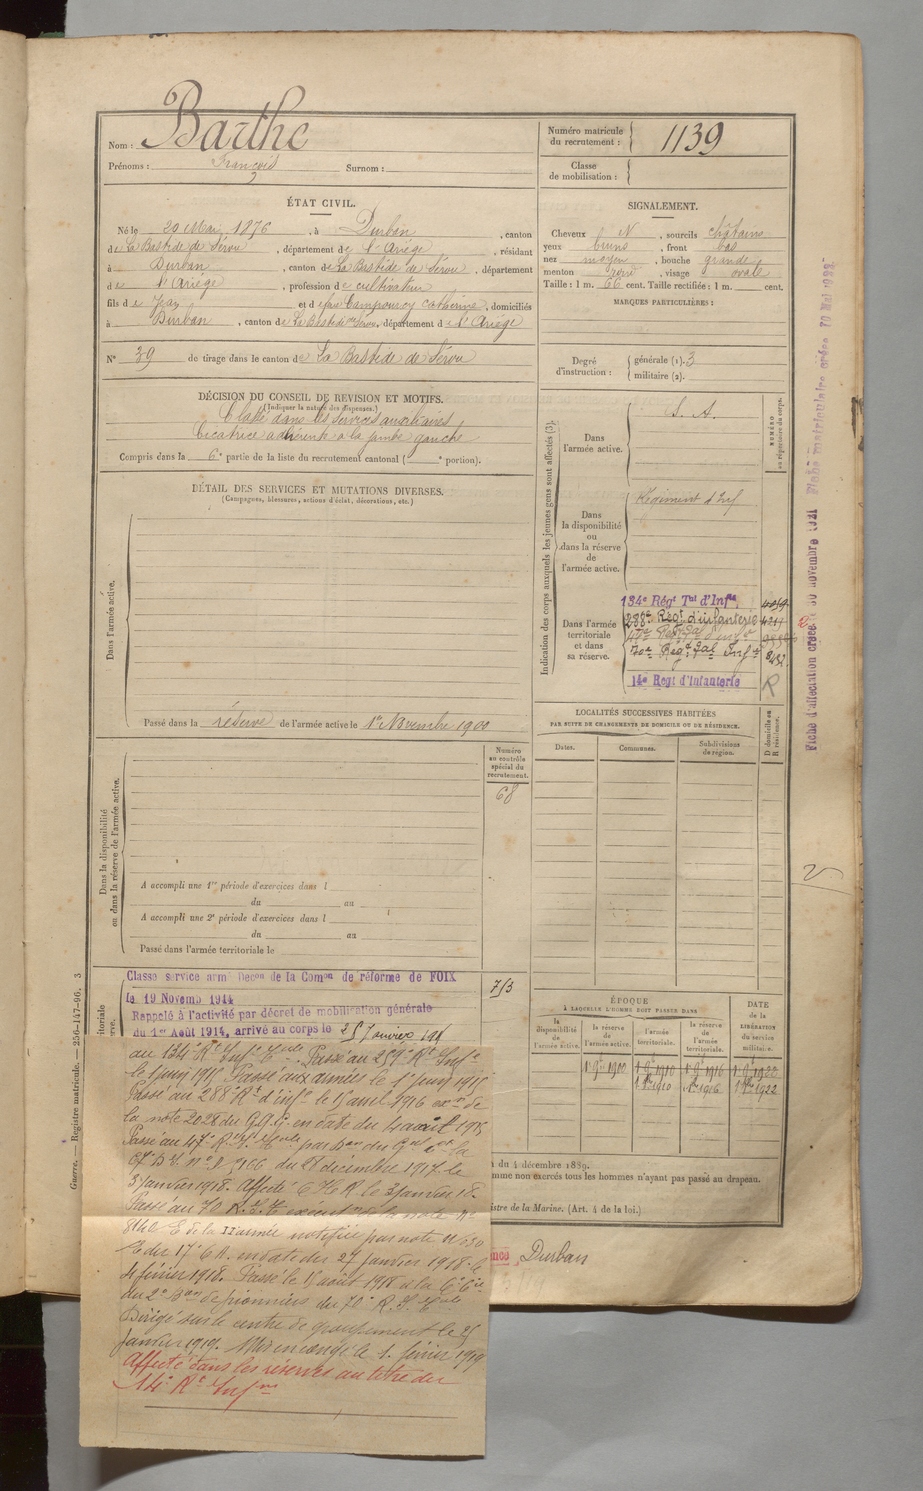 Nom : Barthe
Prénoms : François Surnom :
Numéro matricule du recrutement : 1139
Classe de mobilisation :
ÉTAT CIVIL.
Né le 20 Mai 1876, à Durban, canton
de La Bastide de Sérou, département de l'Ariège, résidant
à Durban, canton de La Bastide de Sérou, département
de l'Ariège, profession de cultivateur
fils de Jean et de feu Campourcy Catherine, domiciliés
à Durban, canton de La Bastide de Sérou, département de l'Ariège
N° 39 de tirage dans le canton de La Bastide de Sérou
SIGNALEMENT.
Cheveux N, sourcils châtains
yeux bruns, front bas
nez moyen, bouche grande
menton rond, visage ovale
Taille : 1 m. 66 cent. Taille rectifiée : 1 m. cent.
MARQUES PARTICULIÈRES :
Degré d'instruction : générale (1). 3
militaire (2).
DÉCISION DU CONSEIL DE REVISION ET MOTIFS.
(Indiquer la nature des dispenses.)
Classé dans les services auxiliaires
Cicatrice adhérente à la jambe gauche
Compris dans la 6e partie de la liste du recrutement cantonal ( e portion).
DÉTAIL DES SERVICES ET MUTATIONS DIVERSES.
(Campagnes, blessures, actions d'éclat, décorations, etc.)
Dans l'armée active.
Passé dans la réserve de l'armée active le 1er Novembre 1900
Indication des corps auxquels les jeunes gens sont affectés (3).
NUMÉRO au répertoire du corps.
Dans l'armée active.
S. A.
Dans la disponibilité ou dans la réserve de l'armée active.
Régiment d'Inf
Dans l'armée territoriale et dans sa réserve.
134e Régt Tal d'Infie
288e Régt d'infanterie
70e Régt Tal Infie
14e Regt d'Infanterie
R
Fiche d'affectation créée 30 novembre 1921 Fiche matriculaire créée
LOCALITÉS SUCCESSIVES HABITÉES
PAR SUITE DE CHANGEMENTS DE DOMICILE OU DE RÉSIDENCE.
Dates. Communes. Subdivisions de région. D domicile ou R résidence.
Dans la disponibilité ou dans la réserve de l'armée active.
Numéro au contrôle spécial du recrutement.
68
A accompli une 1re période d'exercices dans l
du au
A accompli une 2e période d'exercices dans l
du au
Passé dans l'armée territoriale le
753
Classe service armé Decon de la Comon de réforme de FOIX
le 19 Novemb 1914
Rappelé à l'activité par décret de mobilisation générale
du 1er Août 1914, arrivé au corps le 25 Janvier 191
au 134e Rt Infie Tale. Passé au 259e Rt Infie
le 1 juin 1915 Passé aux armées le 1 juin 1915
Passé au 288 Rt d'inf le 15 avril 1916 exon de
la note 2028 du G.Q.G. en date du 4 août 1915
Passé au 47e R. I. Tale par Don du Gal Ct la
67 D.I. n° 166 du 28 décembre 1917 le
3 Janvier 1918. Affecté C H R le 3 Janvier 18.
Passé au 70 R.I.T. execut de la note N°
E de la IIe armée notifiée par note
du 17e C.A. en date du 27 Janvier 1918. le
4 février 1918. Passé le 15 août 1918 à la 6e Cie
du 2e Bon de pionniers du 70e R. I. Tale
Dirigé sur le centre de groupement le 25
Janvier 1919. Mis en congé le 1. février 1919
Affecté dans les réserves au titre du
14e Rt Infie
ÉPOQUE
À LAQUELLE L'HOMME DOIT PASSER DANS
la disponibilité de l'armée active. la réserve de l'armée active. l'armée territoriale. la réserve de l'armée territoriale.
DATE de la LIBÉRATION du service militaire.
1er 9bre 1900 1er 9bre 1910 1er 9bre 1916 1er 9bre 1922
1910 1916 1922
du 4 décembre 1889.
mme non exercés tous les hommes n'ayant pas passé au drapeau.
istre de la Marine. (Art. 4 de la loi.)
Durban
Guerre. — Registre matricule. — 256-147-96. 3